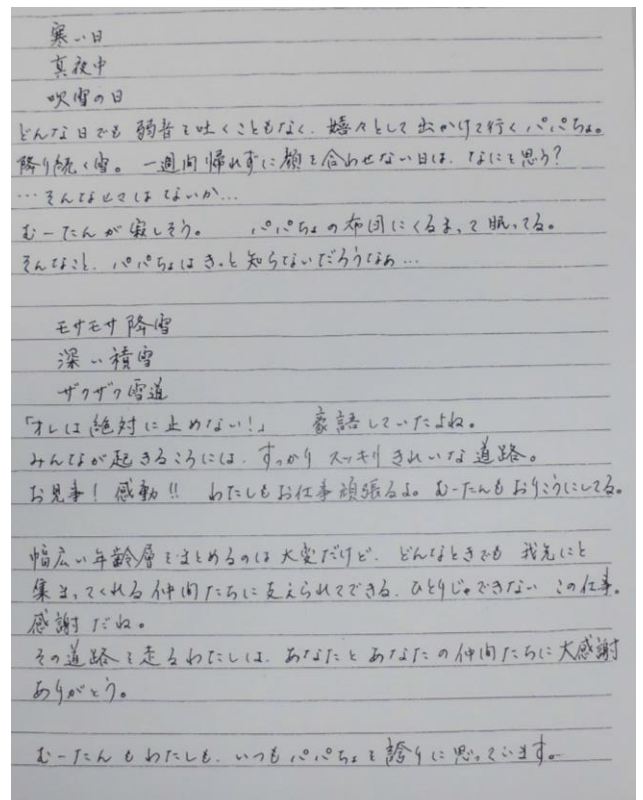 寒い日
真夜中
吹雪の日
どんな日でも弱音を吐くこともなく、嬉々として出かけて行くパパちょ。
降り続く雪。一週間帰れずに顔を合わせない日は、なにを思う?
…そんなヒマはないか…
むーたんが寂しそう。 パパちょの布団にくるまって眠ってる。
そんなこと、パパちょはきっと知らないだろうなぁ…
モサモサ降雪
深い積雪
ザクザク雪道
「オレは絶対に止めない!」 豪語していたよね。
みんなが起きるころには、すっかりスッキリきれいな道路。
お見事! 感動!! わたしもお仕事頑張るよ。むーたんもおりこうにしてる。
幅広い年齢層をまとめるのは大変だけど、どんなときでも我先にと
集まってくれる仲間たちに支えられてできる、ひとりじゃできないこの仕事。
感謝だね。
その道路を走るわたしは、あなたとあなたの仲間たちに大感謝
ありがとう。
むーたんもわたしも、いつもパパちょを誇りに思っています。